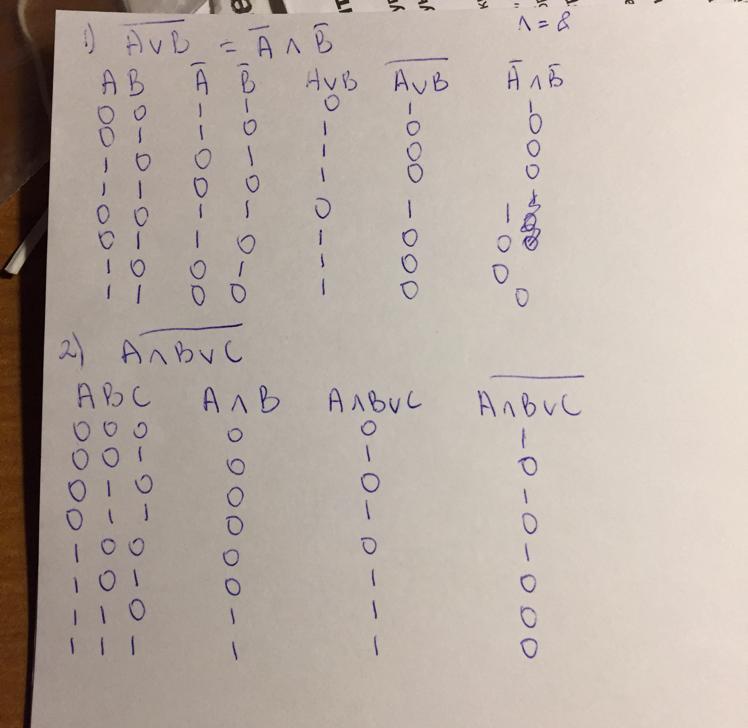 ∧ = &
1) A̅∨̅B̅ = A̅ ∧ B̅
A B A̅ B̅ A∨B A̅∨̅B̅ A̅ ∧ B̅
0 0 1 1 0 1 1
0 1 1 0 1 0 0
1 0 0 1 1 0 0
1 1 0 0 1 0 0
0 0 1 1 0 1 1
0 1 1 0 1 0 0
1 0 0 1 1 0 0
1 1 0 0 1 0 0
2) A̅∧̅B̅∨̅C̅
A B C A ∧ B A∧B∨C A̅∧̅B̅∨̅C̅
0 0 0 0 0 1
0 0 1 0 1 0
0 1 0 0 0 1
0 1 1 0 1 0
1 0 0 0 0 1
1 0 1 0 1 0
1 1 0 1 1 0
1 1 1 1 1 0